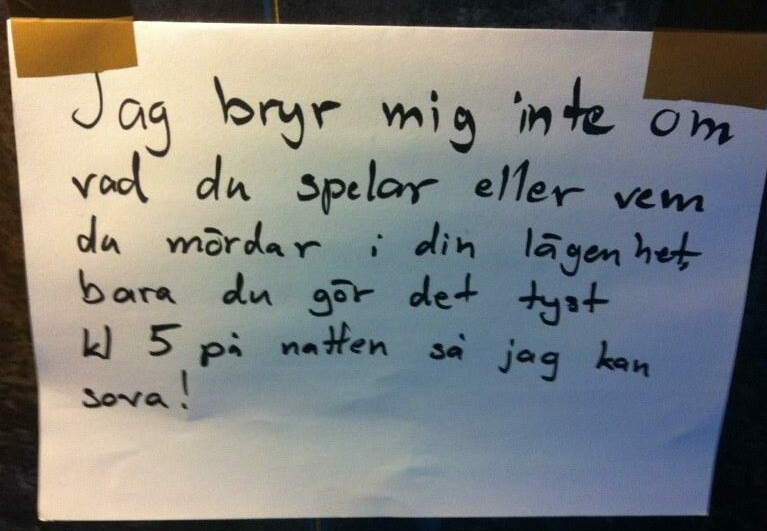 Jag bryr mig inte om
vad du spelar eller vem
du mördar i din lägenhet,
bara du gör det tyst
kl 5 på natten så jag kan
sova!